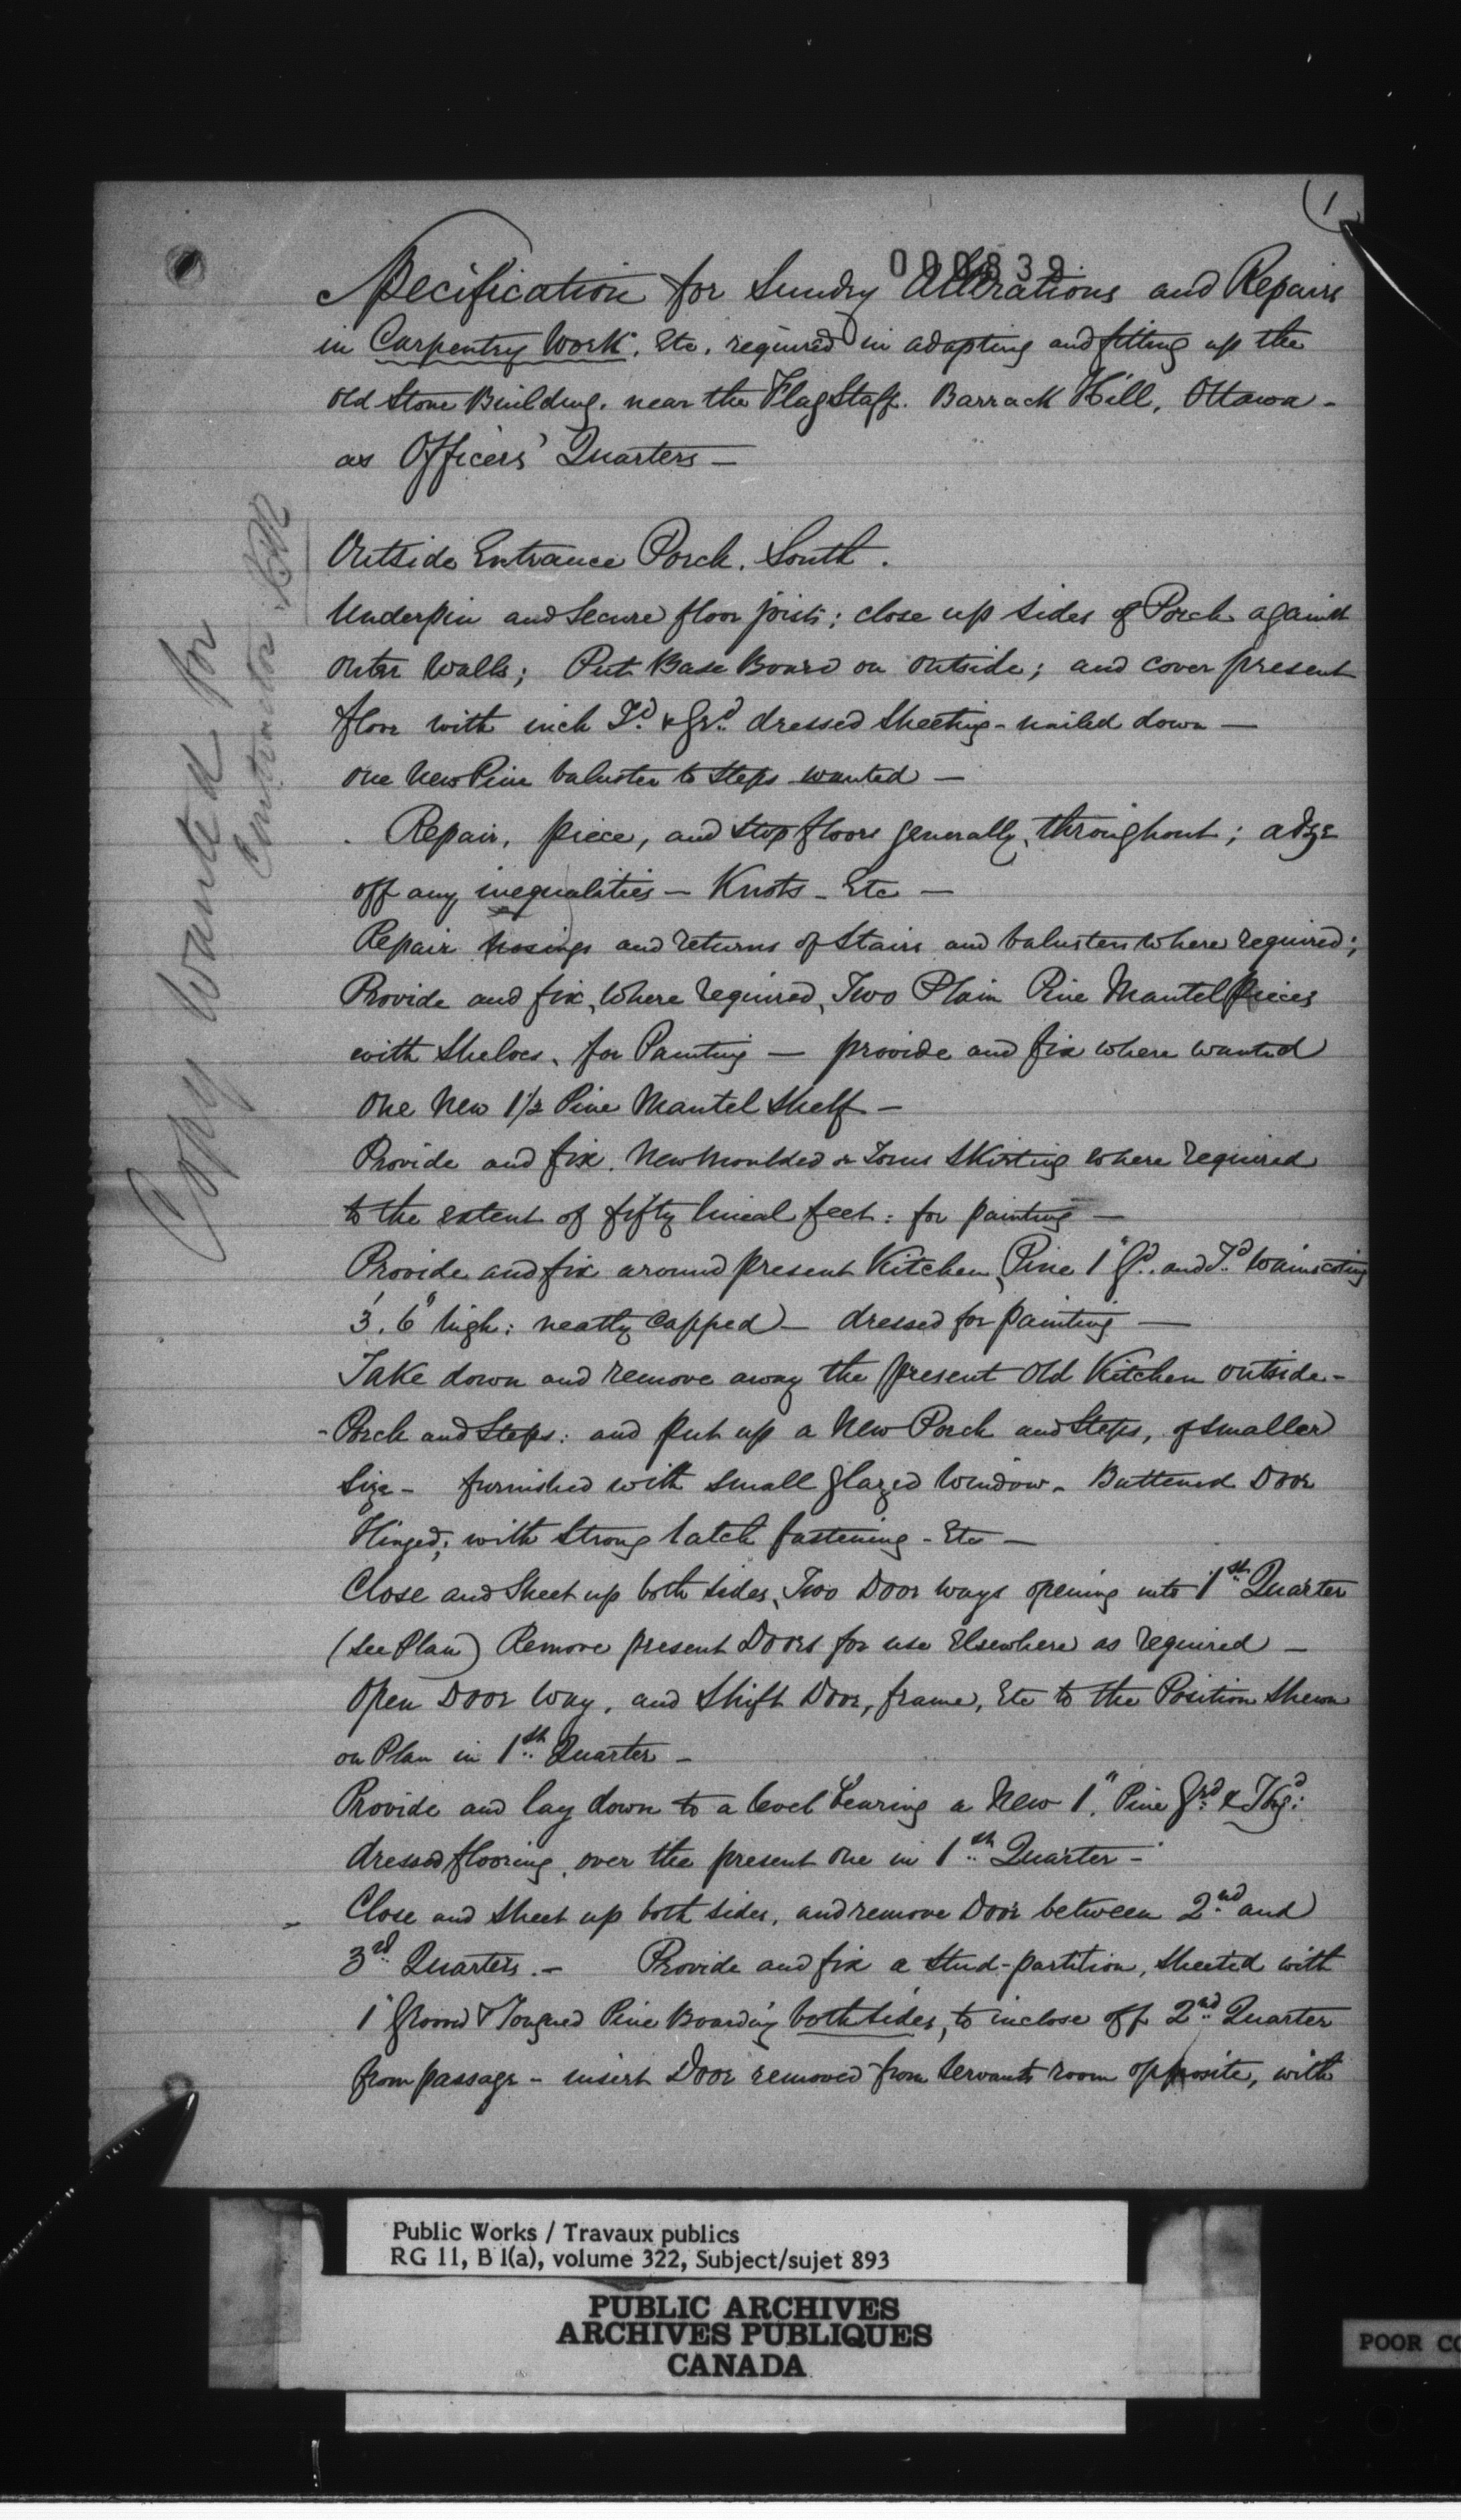 (1
000839
Specification for Sundry Alterations and Repairs
in Carpentry Work, Etc. required in adapting and fitting up the
old Stone Building, near the Flag Staff. Barrack Hill, Ottawa -
as Officers' Quarters —
Outside Entrance Porch. South.
Underpin and Secure floor joists; close up sides of Porch against
outer walls; Put Base Board on outside; and cover present
floor with inch Td. & Grd. dressed sheeting - nailed down —
one New Pine baluster to steps wanted —
Repair, piece, and stop floors generally, throughout; adze
off any inequalities — Knots - Etc —
Repair nosings and returns of Stairs and balusters where required;
Provide and fix, where required, Two Plain Pine Mantel pieces
with Shelves, for Painting — provide and fix where wanted
one New 1½ Pine Mantel Shelf —
Provide and fix. New moulded or Torus Skirting where required
to the extent of fifty lineal feet: for painting —
Provide and fix around present Kitchen, Pine 1" Gd. and Td. Wainscoting
3'. 6" high: neatly Capped — dressed for painting —
Take down and remove away the present old Kitchen outside -
- Porch and Steps: and put up a New Porch and Steps, of smaller
Size - furnished with small glazed Window - Battened Door
Hinged; with strong latch fastening - Etc —
Close and Sheet up both sides, Two Door ways opening into 1st. Quarter
(See Plan) Remove present Doors for use Elsewhere as required —
Open Door Way, and Shift Door, frame, Etc to the Position Shewn
on Plan in 1st. Quarter -
Provide and lay down to a level bearing a New 1". Pine Grd. & Tng'd:
dressed flooring, over the present one in 1st. Quarter -
Close and sheet up both sides, and remove Door between 2nd. and
3rd. Quarters. - Provide and fix a stud-partition, sheeted with
1" Grooved & Tongued Pine Boarding both sides, to inclose off 2nd. Quarter
from passage - insert Door removed from Servants room opposite, with
Copy Wanted for
Contractor
Public Works / Travaux publics
RG 11, B 1(a), volume 322, Subject/sujet 893
PUBLIC ARCHIVES
ARCHIVES PUBLIQUES
CANADA
POOR CO